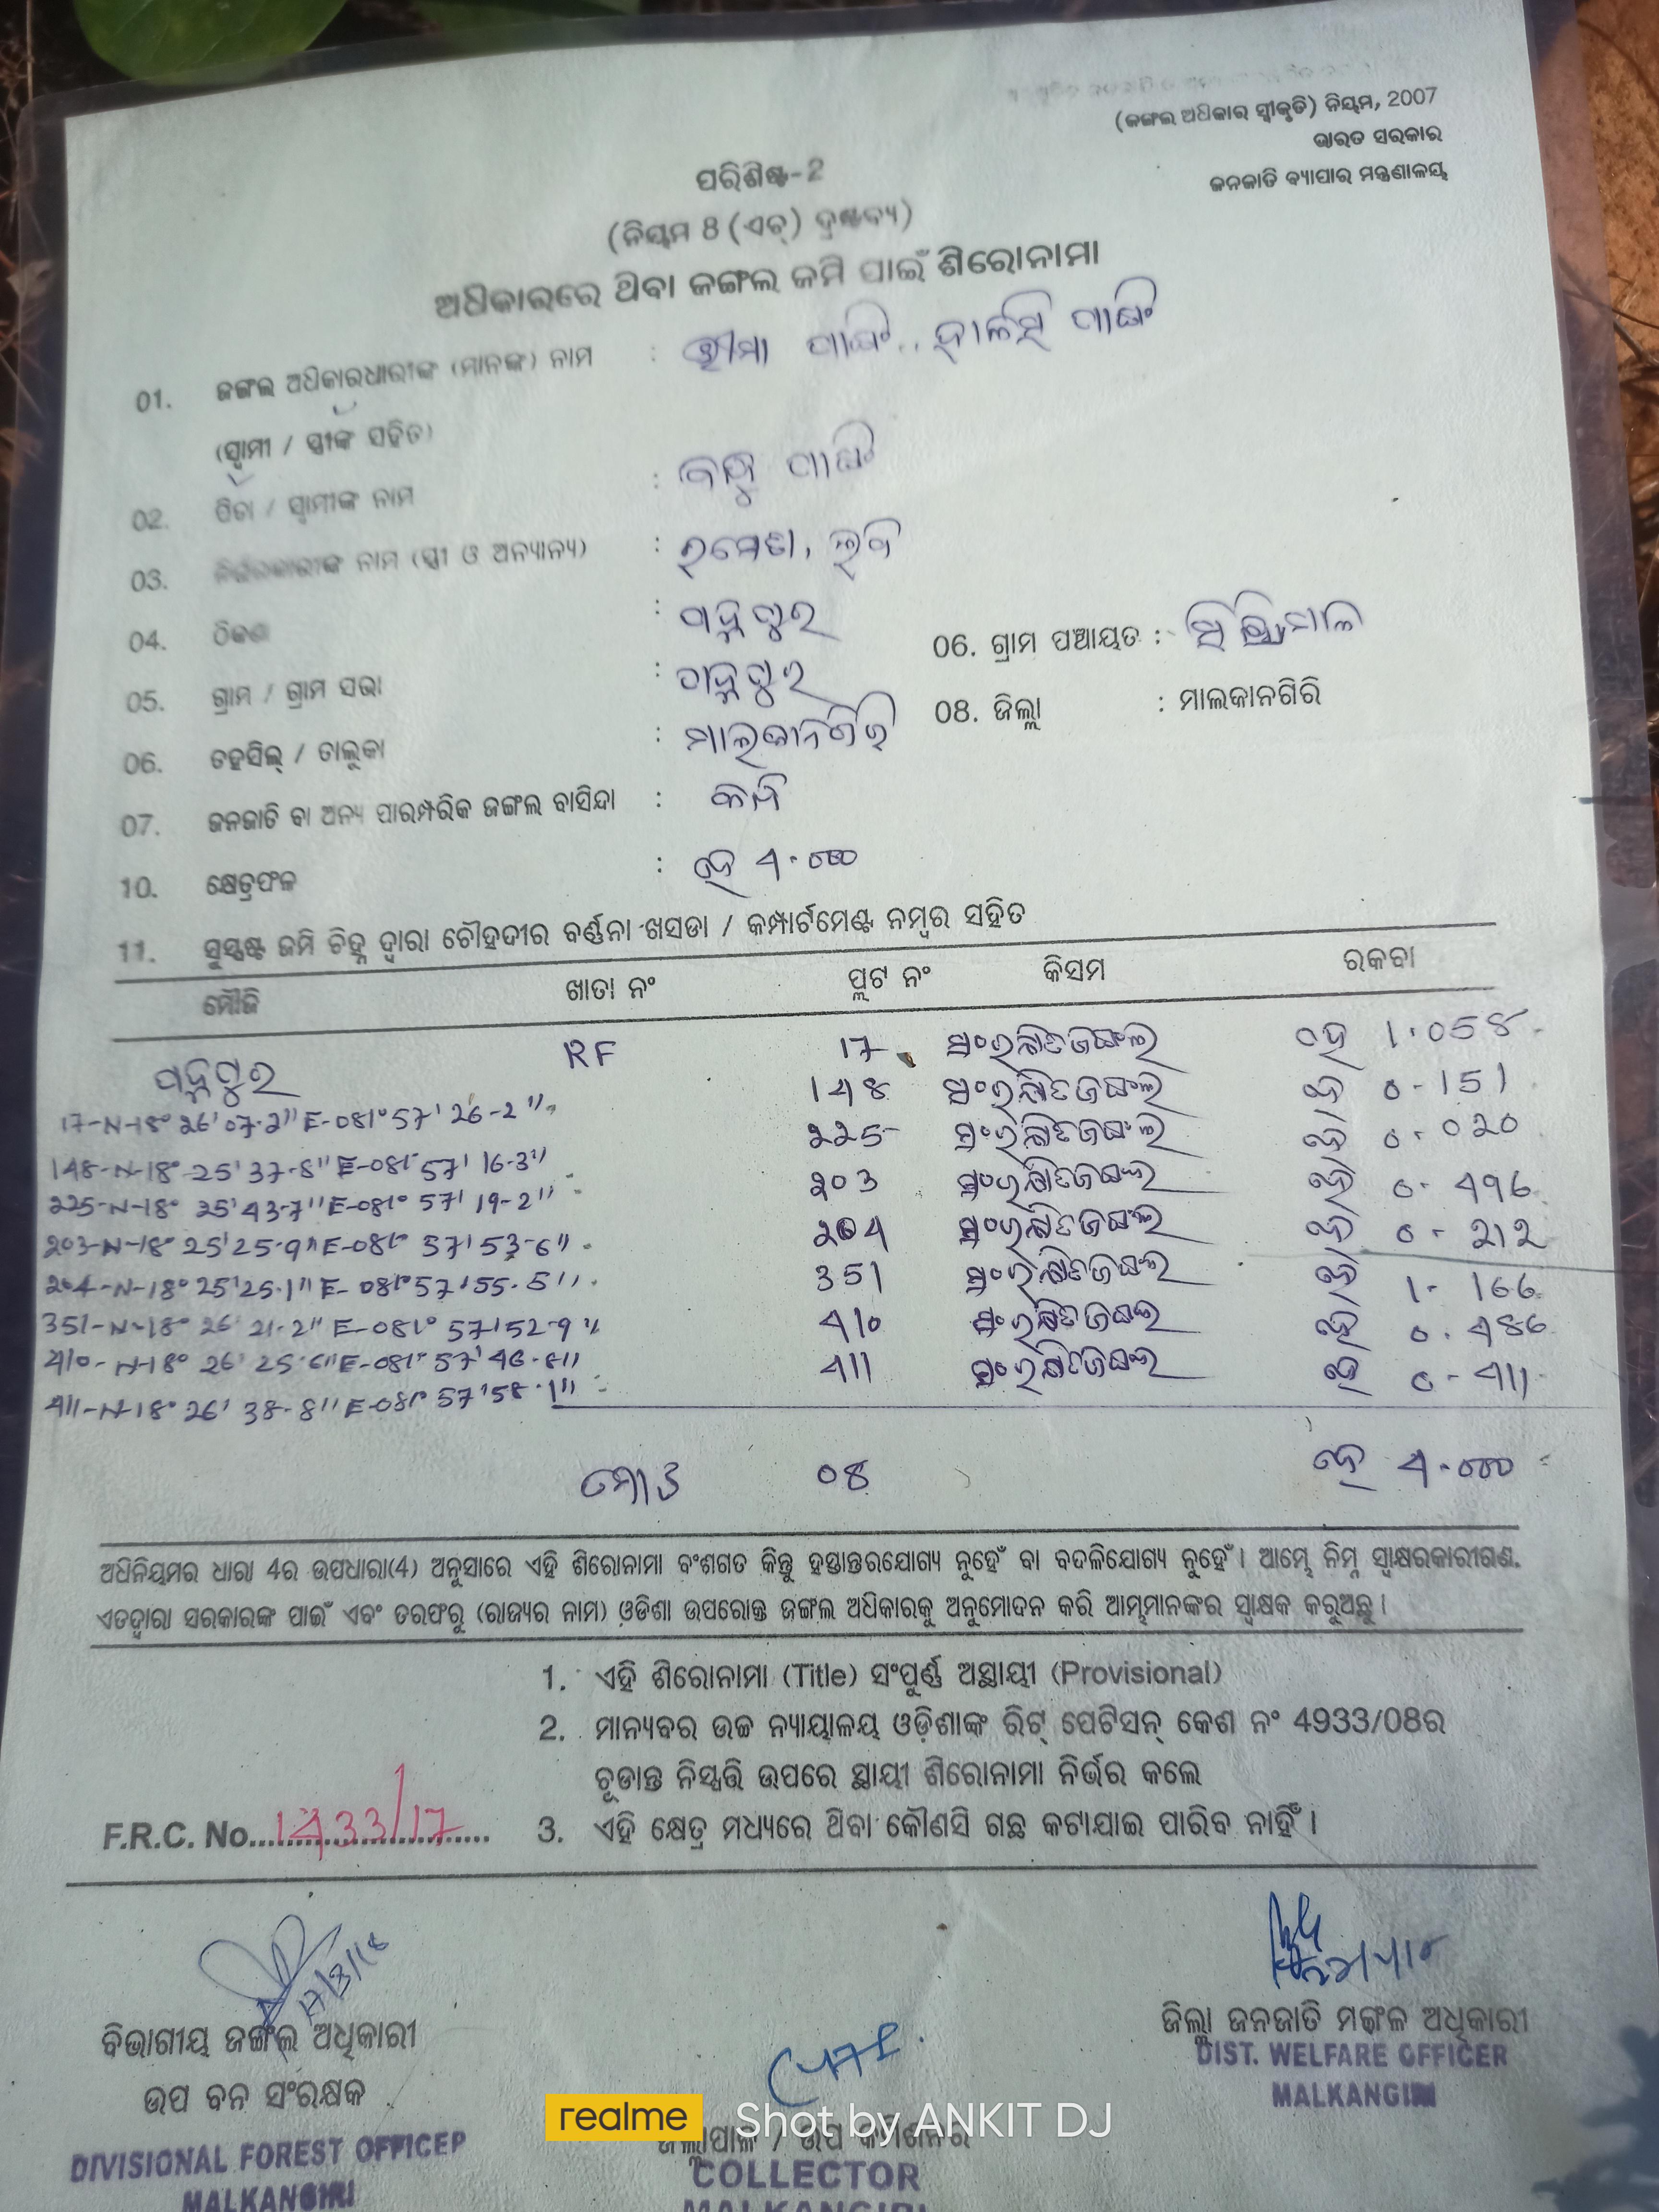 (ଜଙ୍ଗଲ ଅଧିକାର ସ୍ୱୀକୃତି) ନିୟମ, 2007
ଭାରତ ସରକାର
ଜନଜାତି ବ୍ୟାପାର ମନ୍ତ୍ରଣାଳୟ
ପରିଶିଷ୍ଟ-2
(ନିୟମ 8 (ଏଚ୍) ଦ୍ରଷ୍ଟବ୍ୟ)
ଅଧିକାରରେ ଥିବା ଜଙ୍ଗଲ ଜମି ପାଇଁ ଶିରୋନାମା
01. ଜଙ୍ଗଲ ଅଧିକାରଧାରୀଙ୍କ (ମାନଙ୍କ) ନାମ :
(ସ୍ୱାମୀ / ସ୍ତ୍ରୀଙ୍କ ସହିତ)
02. ପିତା / ସ୍ୱାମୀଙ୍କ ନାମ :
03. ନିର୍ଭରକାରୀଙ୍କ ନାମ (ସ୍ତ୍ରୀ ଓ ଅନ୍ୟାନ୍ୟ) :
04. ଠିକଣା :
05. ଗ୍ରାମ / ଗ୍ରାମ ସଭା : 06. ଗ୍ରାମ ପଞ୍ଚାୟତ :
06. ତହସିଲ୍ / ତାଲୁକା : ମାଲକାନଗିରି 08. ଜିଲ୍ଲା : ମାଲକାନଗିରି
07. ଜନଜାତି ବା ଅନ୍ୟ ପାରମ୍ପରିକ ଜଙ୍ଗଲ ବାସିନ୍ଦା :
10. କ୍ଷେତ୍ରଫଳ : ହେ 4.000
11. ସୁସ୍ପଷ୍ଟ ଜମି ଚିହ୍ନ ଦ୍ୱାରା ଚୌହଦୀର ବର୍ଣ୍ଣନା ଖସଡା / କମ୍ପାର୍ଟମେଣ୍ଟ ନମ୍ବର ସହିତ
ମୌଜି ଖାତା ନଂ ପ୍ଲଟ ନଂ କିସମ ରକବା
RF 17 ସଂରକ୍ଷିତ ଜଙ୍ଗଲ ହେ 1.058
17-N-18° 26' 07.2" E-081° 57' 26-2" 148 ସଂରକ୍ଷିତ ଜଙ୍ଗଲ ହେ 0-151
148-N-18° 25' 37-8" E-081° 57' 16-3" 225 ସଂରକ୍ଷିତ ଜଙ୍ଗଲ ହେ 0.020
225-N-18° 25' 43-7" E-081° 57' 19-2" 203 ସଂରକ୍ଷିତ ଜଙ୍ଗଲ ହେ 0-496
203-N-18° 25' 25-9" E-081° 57' 53-6" 204 ସଂରକ୍ଷିତ ଜଙ୍ଗଲ ହେ 0-212
204-N-18° 25' 25.1" E-081° 57' 55.5" 351 ସଂରକ୍ଷିତ ଜଙ୍ଗଲ ହେ 1-166
351-N-18° 26' 21-2" E-081° 57' 52-9" 410 ସଂରକ୍ଷିତ ଜଙ୍ଗଲ ହେ 0.486
410-N-18° 26' E-081° 57' 411 ସଂରକ୍ଷିତ ଜଙ୍ଗଲ ହେ 0-411
411-N-18° 26' 38-8" E-081° 57' 58.1"
ମୋଟ 08 ହେ 4.000
ଅଧିନିୟମର ଧାରା 4ର ଉପଧାରା(4) ଅନୁସାରେ ଏହି ଶିରୋନାମା ବଂଶଗତ କିନ୍ତୁ ହସ୍ତାନ୍ତରଯୋଗ୍ୟ ନୁହେଁ ବା ବଦଳିଯୋଗ୍ୟ ନୁହେଁ। ଆମ୍ଭେ ନିମ୍ନ ସ୍ୱାକ୍ଷରକାରୀଗଣ.
ଏତଦ୍ୱାରା ସରକାରଙ୍କ ପାଇଁ ଏବଂ ତରଫରୁ (ରାଜ୍ୟର ନାମ) ଓଡିଶା ଉପରୋକ୍ତ ଜଙ୍ଗଲ ଅଧିକାରକୁ ଅନୁମୋଦନ କରି ଆମ୍ଭମାନଙ୍କର ସ୍ୱାକ୍ଷକ କରୁଅଛୁ।
1. ଏହି ଶିରୋନାମା (Title) ସଂପୂର୍ଣ୍ଣ ଅସ୍ଥାୟୀ (Provisional)
2. ମାନ୍ୟବର ଉଚ୍ଚ ନ୍ୟାୟାଳୟ ଓଡ଼ିଶାଙ୍କ ରିଟ୍ ପେଟିସନ୍ କେଶ ନଂ 4933/08ର
ଚୂଡାନ୍ତ ନିସ୍ପତ୍ତି ଉପରେ ସ୍ଥାୟୀ ଶିରୋନାମା ନିର୍ଭର କଲେ
F.R.C. No. 1433/17 3. ଏହି କ୍ଷେତ୍ର ମଧ୍ୟରେ ଥିବା କୌଣସି ଗଛ କଟାଯାଇ ପାରିବ ନାହିଁ।
ବିଭାଗୀୟ ଜଙ୍ଗଲ ଅଧିକାରୀ
ଉପ ବନ ସଂରକ୍ଷକ
DIVISIONAL FOREST OFFICER
MALKANGIRI
ଜିଲ୍ଲାପାଳ / ଉପ କମିଶନର
COLLECTOR
MALKANGIRI
ଜିଲ୍ଲା ଜନଜାତି ମଙ୍ଗଳ ଅଧିକାରୀ
DIST. WELFARE OFFICER
MALKANGIRI
realme Shot by ANKIT DJ